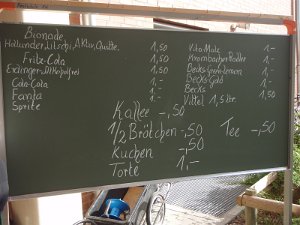 Bionade
Holunder, Litschi, A Klar, Quitte. 1,50
Fritz-Cola 1,50
Erdinger Alkoholfrei 1,50
Cola-Cola 1,-
Fanta 1,-
Sprite 1,-
Vita Malz 1,-
Krombacher Radler 1,-
Becks Green Lemon 1,-
Becks Gold 1,-
Becks 1,-
Vittel 1,5 ltr. 1,50
Kaffee -,50
1/2 Brötchen -,50
Tee -,50
Kuchen -,50
Torte 1,-